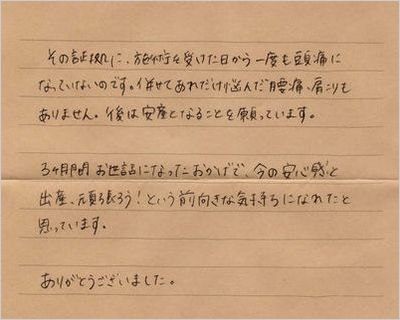 その証拠に、施術を受けた日から一度も頭痛に
なっていないのです。併せてあれだけ悩んだ腰痛、肩こりも
ありません。後は安産となることを願っています。
3ヶ月間お世話になったおかげで、今の安心感と
出産、頑張ろう！という前向きな気持ちになれたと
思っています。
ありがとうございました。